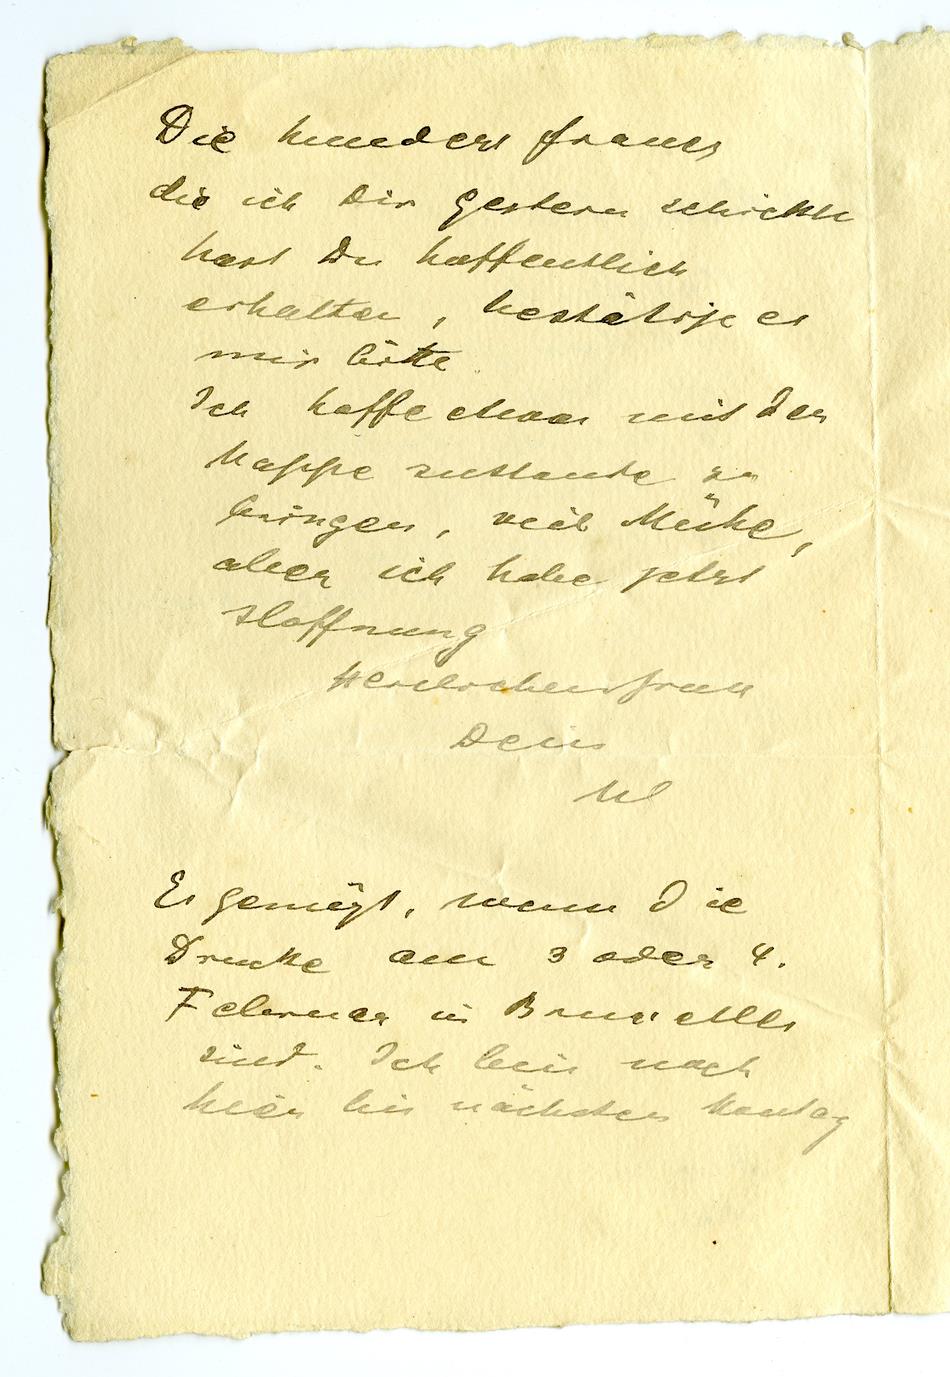 Die hundert francs
die ich Dir gestern schickte
hast Du hoffentlich
erhalten, bestätige es
mir bitte
Ich hoffe etwas mit der
Mappe zustande zu
bringen, viel Mühe,
aber ich habe jetzt
Hoffnung
Dein
Es genügt, wenn die
Drucke am 3 oder 4.
Februar in Bruxelles
sind. Ich bin noch
hier bis nächsten Montag